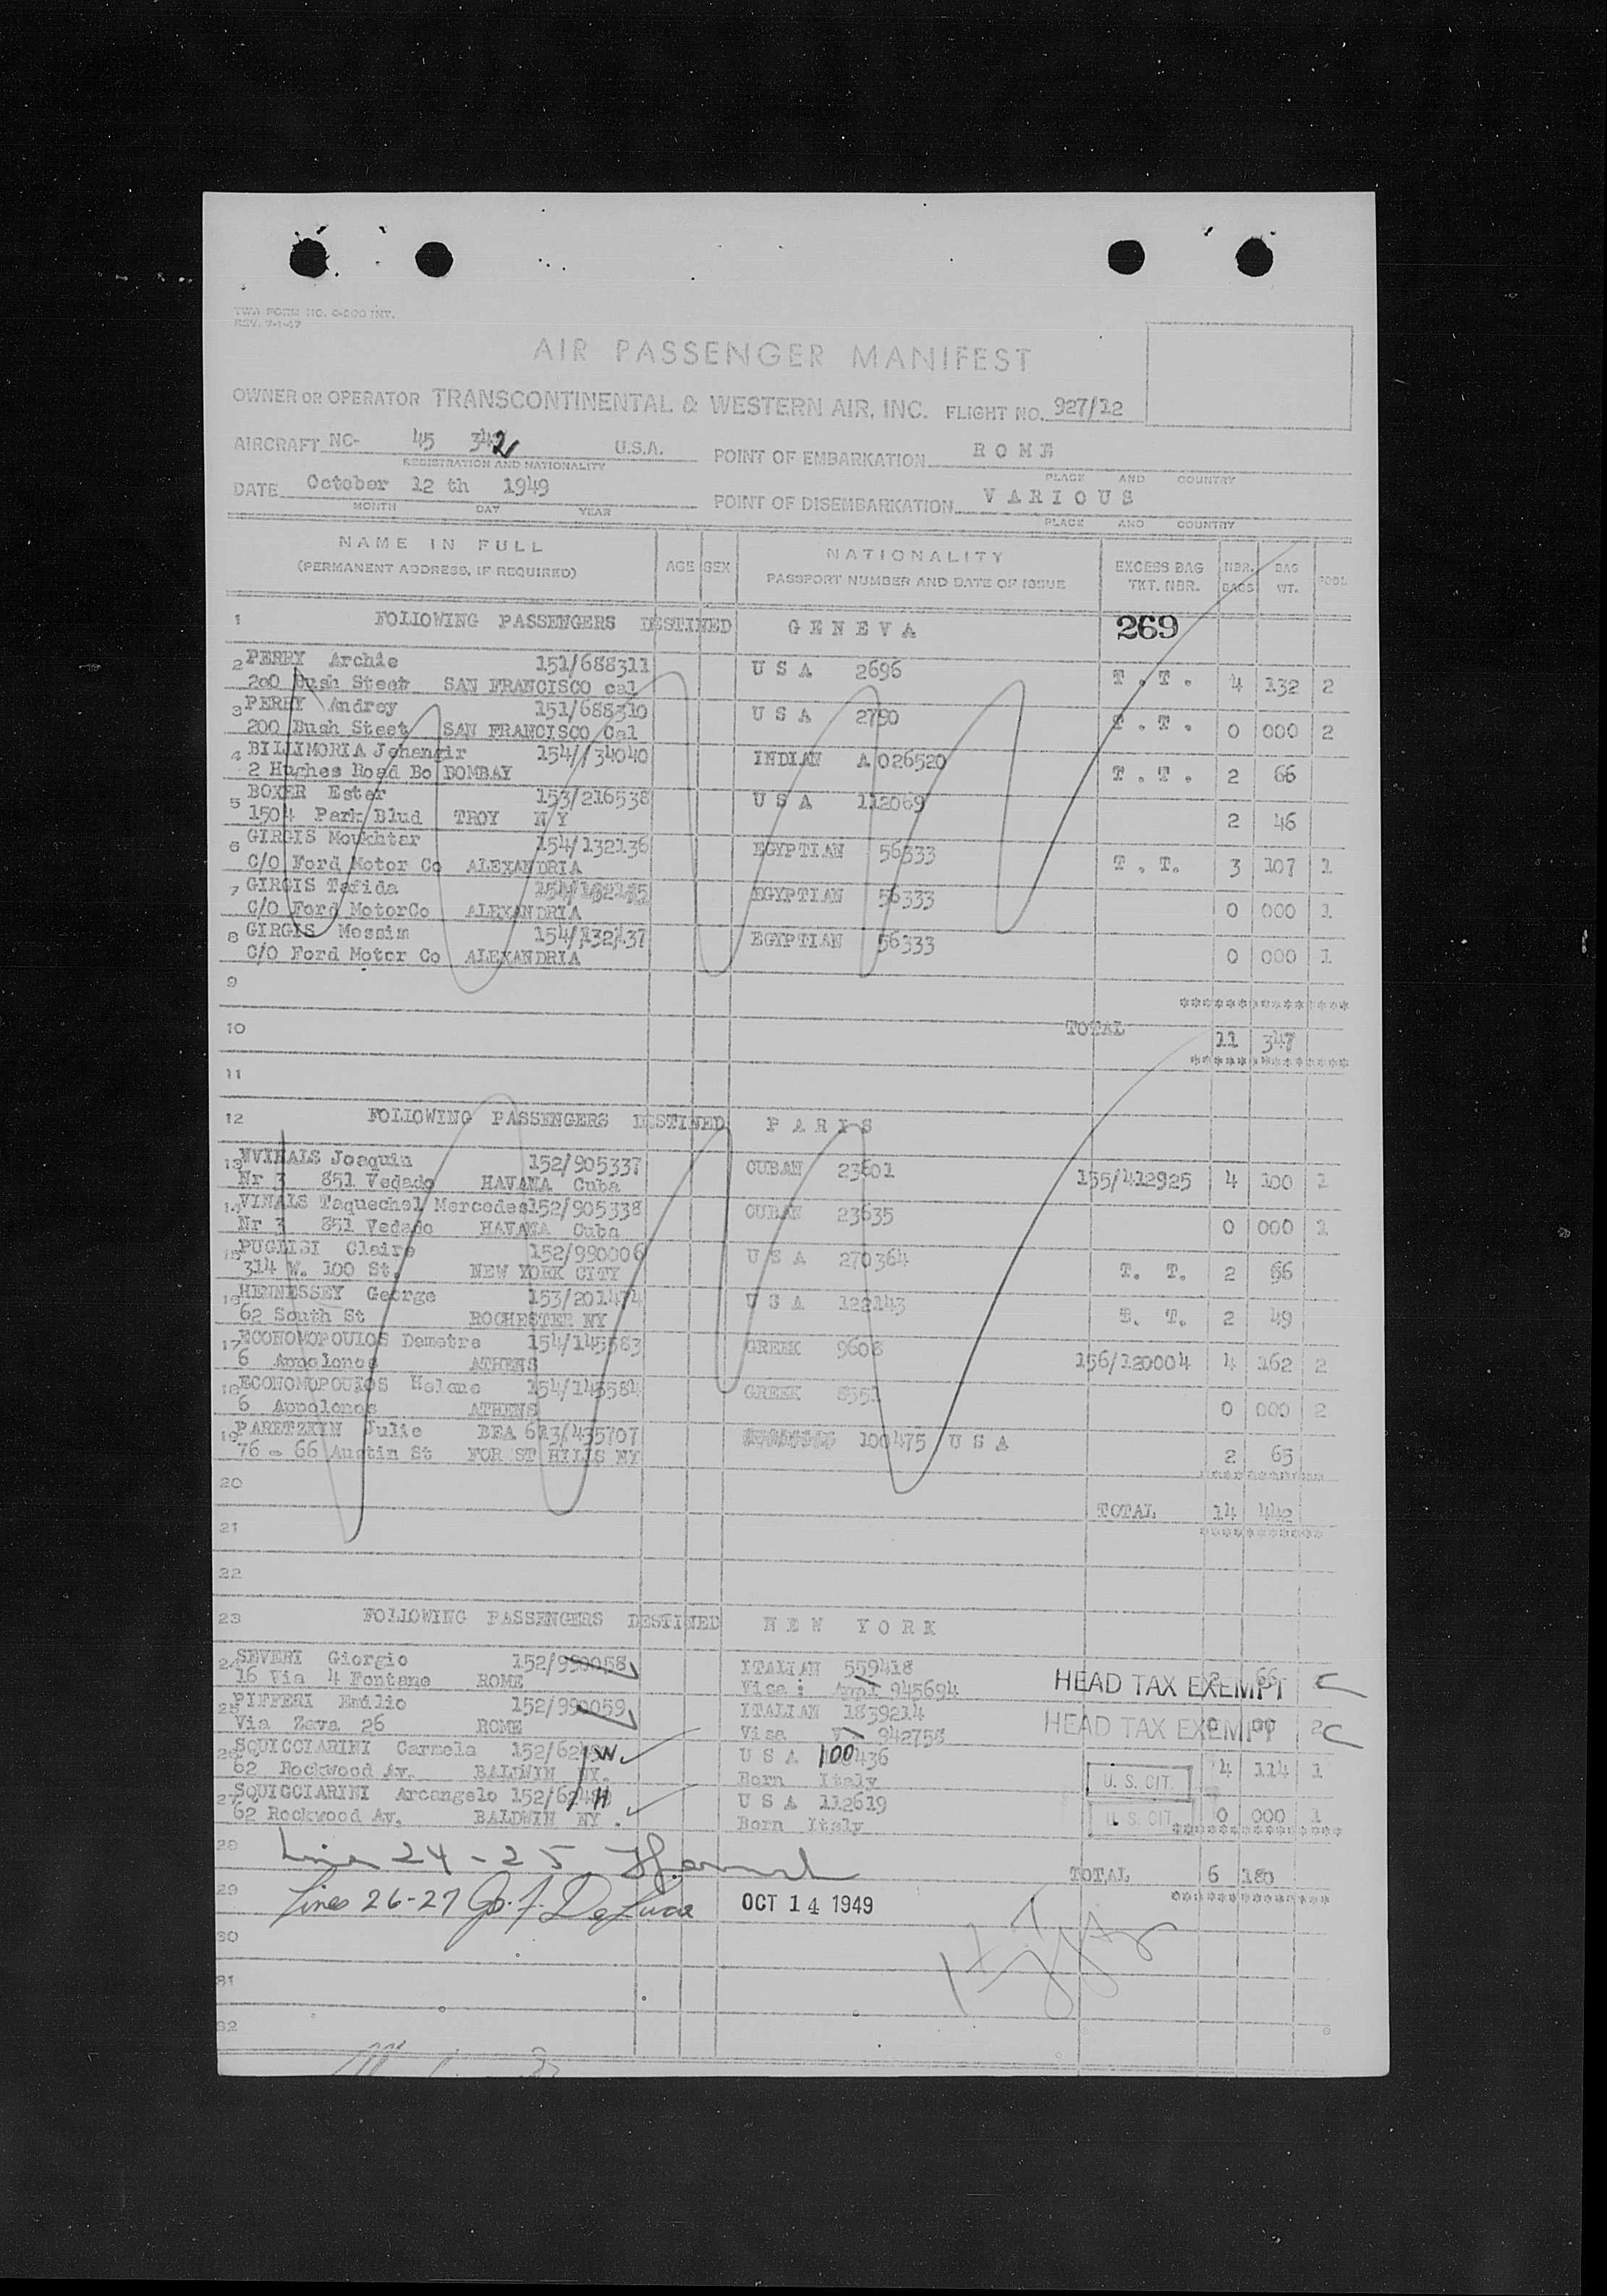 TWA FORM NO. O-200 INT.
REV. 7-1-47
AIR PASSENGER MANIFEST
OWNER OR OPERATOR TRANSCONTINENTAL & WESTERN AIR, INC. FLIGHT NO. 927/12
AIRCRAFT NC- 45 342 U.S.A. POINT OF EMBARKATION R O M E
REGISTRATION AND NATIONALITY PLACE AND COUNTRY
DATE October 12 th 1949 POINT OF DISEMBARKATION V A R I O U S
MONTH DAY YEAR PLACE AND COUNTRY
NAME IN FULL AGE SEX NATIONALITY EXCESS BAG NBR. BAG
(PERMANENT ADDRESS, IF REQUIRED) PASSPORT NUMBER AND DATE OF ISSUE TKT. NBR. BAGS WT.
1 FOLLOWING PASSENGERS DESTINED G E N E V A 269
2 PERRY Archie 151/688311 U S A 2696 T . T . 4 132 2
200 Bush Steet SAN FRANCISCO cal
3 PERRY Andrey 151/688310 U S A 2790 T . T . 0 000 2
200 Bush Steet SAN FRANCISCO Cal
4 BILLIMORIA Jehangir 154/134040 INDIAN A 026520 T . T . 2 66
2 Hughes Road Bo BOMBAY
5 BOXER Ester 153/216538 U S A 112069 2 46
1504 Park Blud TROY N Y
6 GIRGIS Moukhtar 154/132136 EGYPTIAN 56333 T . T. 3 107 1
C/O Ford Motor Co ALEXANDRIA
7 GIRGIS Tafida EGYPTIAN 56333 0 000 1
C/O Ford MotorCo ALEXANDRIA
8 GIRGIS Messim 154/132137 EGYPTIAN 56333 0 000 1
C/O Ford Motor Co ALEXANDRIA
9
10 TOTAL 11 347
11
12 FOLLOWING PASSENGERS DESTINED P A R I S
13 NVINALS Joaquin 152/905337 CUBAN 23601 155/412925 4 100 1
Nr 3 851 Vedado HAVANA Cuba
14 VINALS Taquechel Mercedes 152/905338 CUBAN 23635 0 000 1
Nr 3 851 Vedado HAVANA Cuba
15 PUGLISI Claire 152/990006 U S A 270364 T. T. 2 66
314 W. 100 St. NEW YORK CITY
16 HENNESSEY George 153/201474 U S A 122143 T. T. 2 49
62 South St ROCHESTER NY
17 ECONOMOPOULOS Demetre 154/145583 GREEK 9608 156/120004 4 162 2
6 Appolonos ATHENS
18 ECONOMOPOULOS Helene 154/145584 GREEK 8351 0 000 2
6 Appolonos ATHENS
19 PARETZKYN Julie BEA 613/435707 100475 U S A 2 65
76 - 66 Austin St FOR ST HILLS NY
20
TOTAL 14 442
21
22
23 FOLLOWING PASSENGERS DESTINED N E W Y O R K
24 SEVERI Giorgio 152/990058 ITALIAN 559418 HEAD TAX EXEMPT 2 66
16 Via 4 Fontane ROME Visa : Appl 945694
25 PIFFERI Emilio 152/990059 ITALIAN 1839214 HEAD TAX EXEMPT 0 00 2
Via Zava 26 ROME Visa 942758
26 SQUICCIARINI Carmela U S A 100436 U. S. CIT. 4 114 1
62 Rockwood Av. BALDWIN NY. Born Italy
27 SQUICCIARINI Arcangelo U S A 112619 U. S. CIT. 0 000 1
62 Rockwood Av. BALDWIN NY . Born Italy
28 Lines 24 - 25
TOTAL 6 180
29 Lines 26-27 DeLuca OCT 14 1949
30
31
32